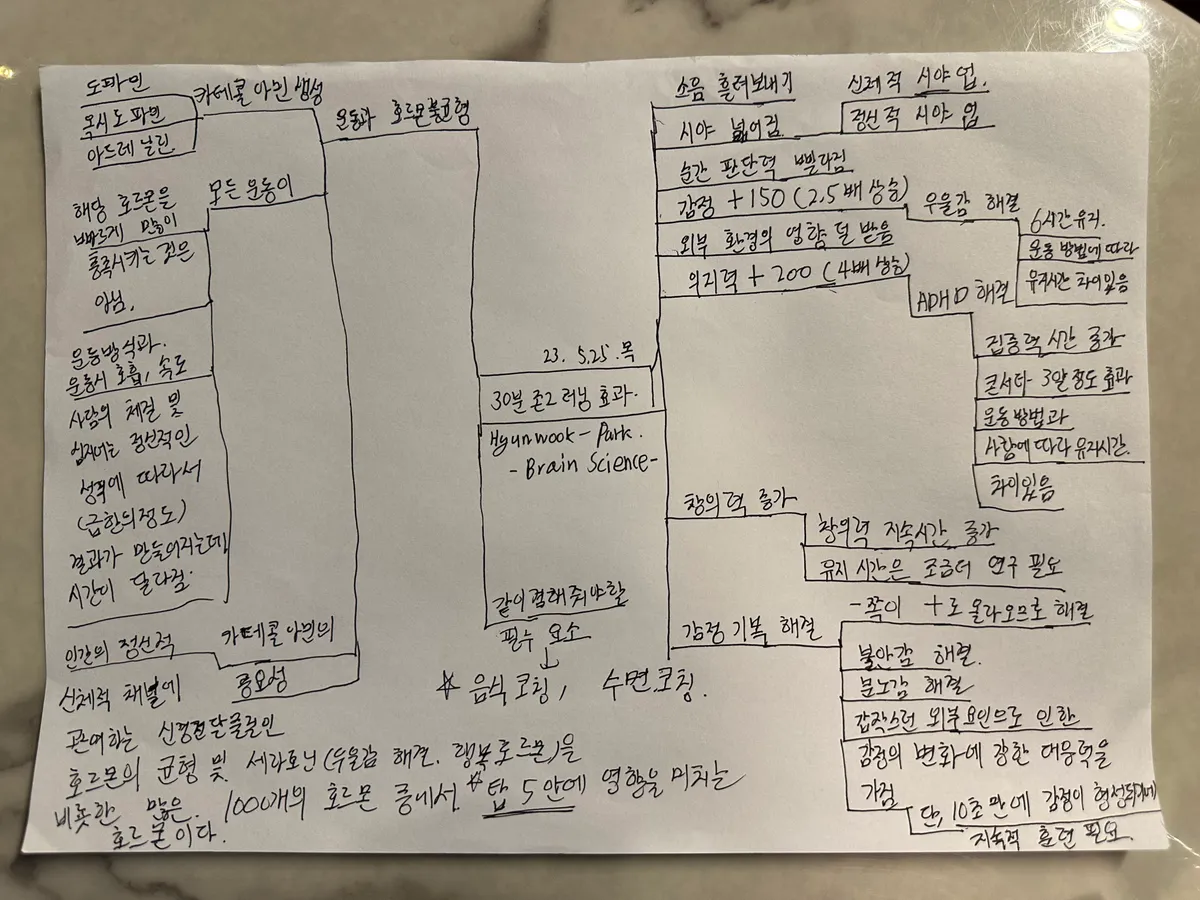 23. 5.25.목
30분 존2 러닝 효과.
Hyunwook - Park.
- Brain Science -
같이 겸해줘야할
필수 요소
↓
* 음식코칭, 수면코칭.
운동과 호르몬불균형
카테콜아민 생성
도파민
옥시도파민
아드레날린
모든 운동이
해당 호르몬을
빠르게 많이
충족시키는 것은
아님.
운동방식과.
운동시 호흡, 속도
사람의 체질 및
심지어는 정신적인
성취에 따라서
(급함의정도)
결과가 만들어지는데
시간이 달라짐.
카테콜아민의
중요성
인간의 정신적
신체적 채널에
관여하는 신경전달물질인
호르몬의 균형 및 세라토닌(우울감 해결. 행복호르몬)을
비롯한 많은. 1000개의 호르몬 중에서 *탑 5안에 영향을 미치는
호르몬이다.
소음 흘려보내기
시야 넓어짐
신체적 시야 업.
정신적 시야 업
순간 판단력 빨라짐
감정 +150 (2.5배 상승)
우울감 해결
6시간유지.
운동 방법에따라
유지시간 차이있음
외부 환경의 영향 덜 받음
의지력 +200 (4배상승)
ADHD 해결
집중력 시간 증가
콘서타 3알정도 효과
운동방법과
사람에따라 유지시간.
차이있음
창의력 증가
창의력 지속시간 증가
유지 시간은 조금더 연구 필요
감정 기복 해결
-쪽이 +로 올라오므로 해결
불안감 해결.
분노감 해결
갑작스런 외부요인으로 인한
감정의 변화에 강한 대응력을
가짐
단, 10초만에 감정이 형성되기에
지속적 훈련 필요.